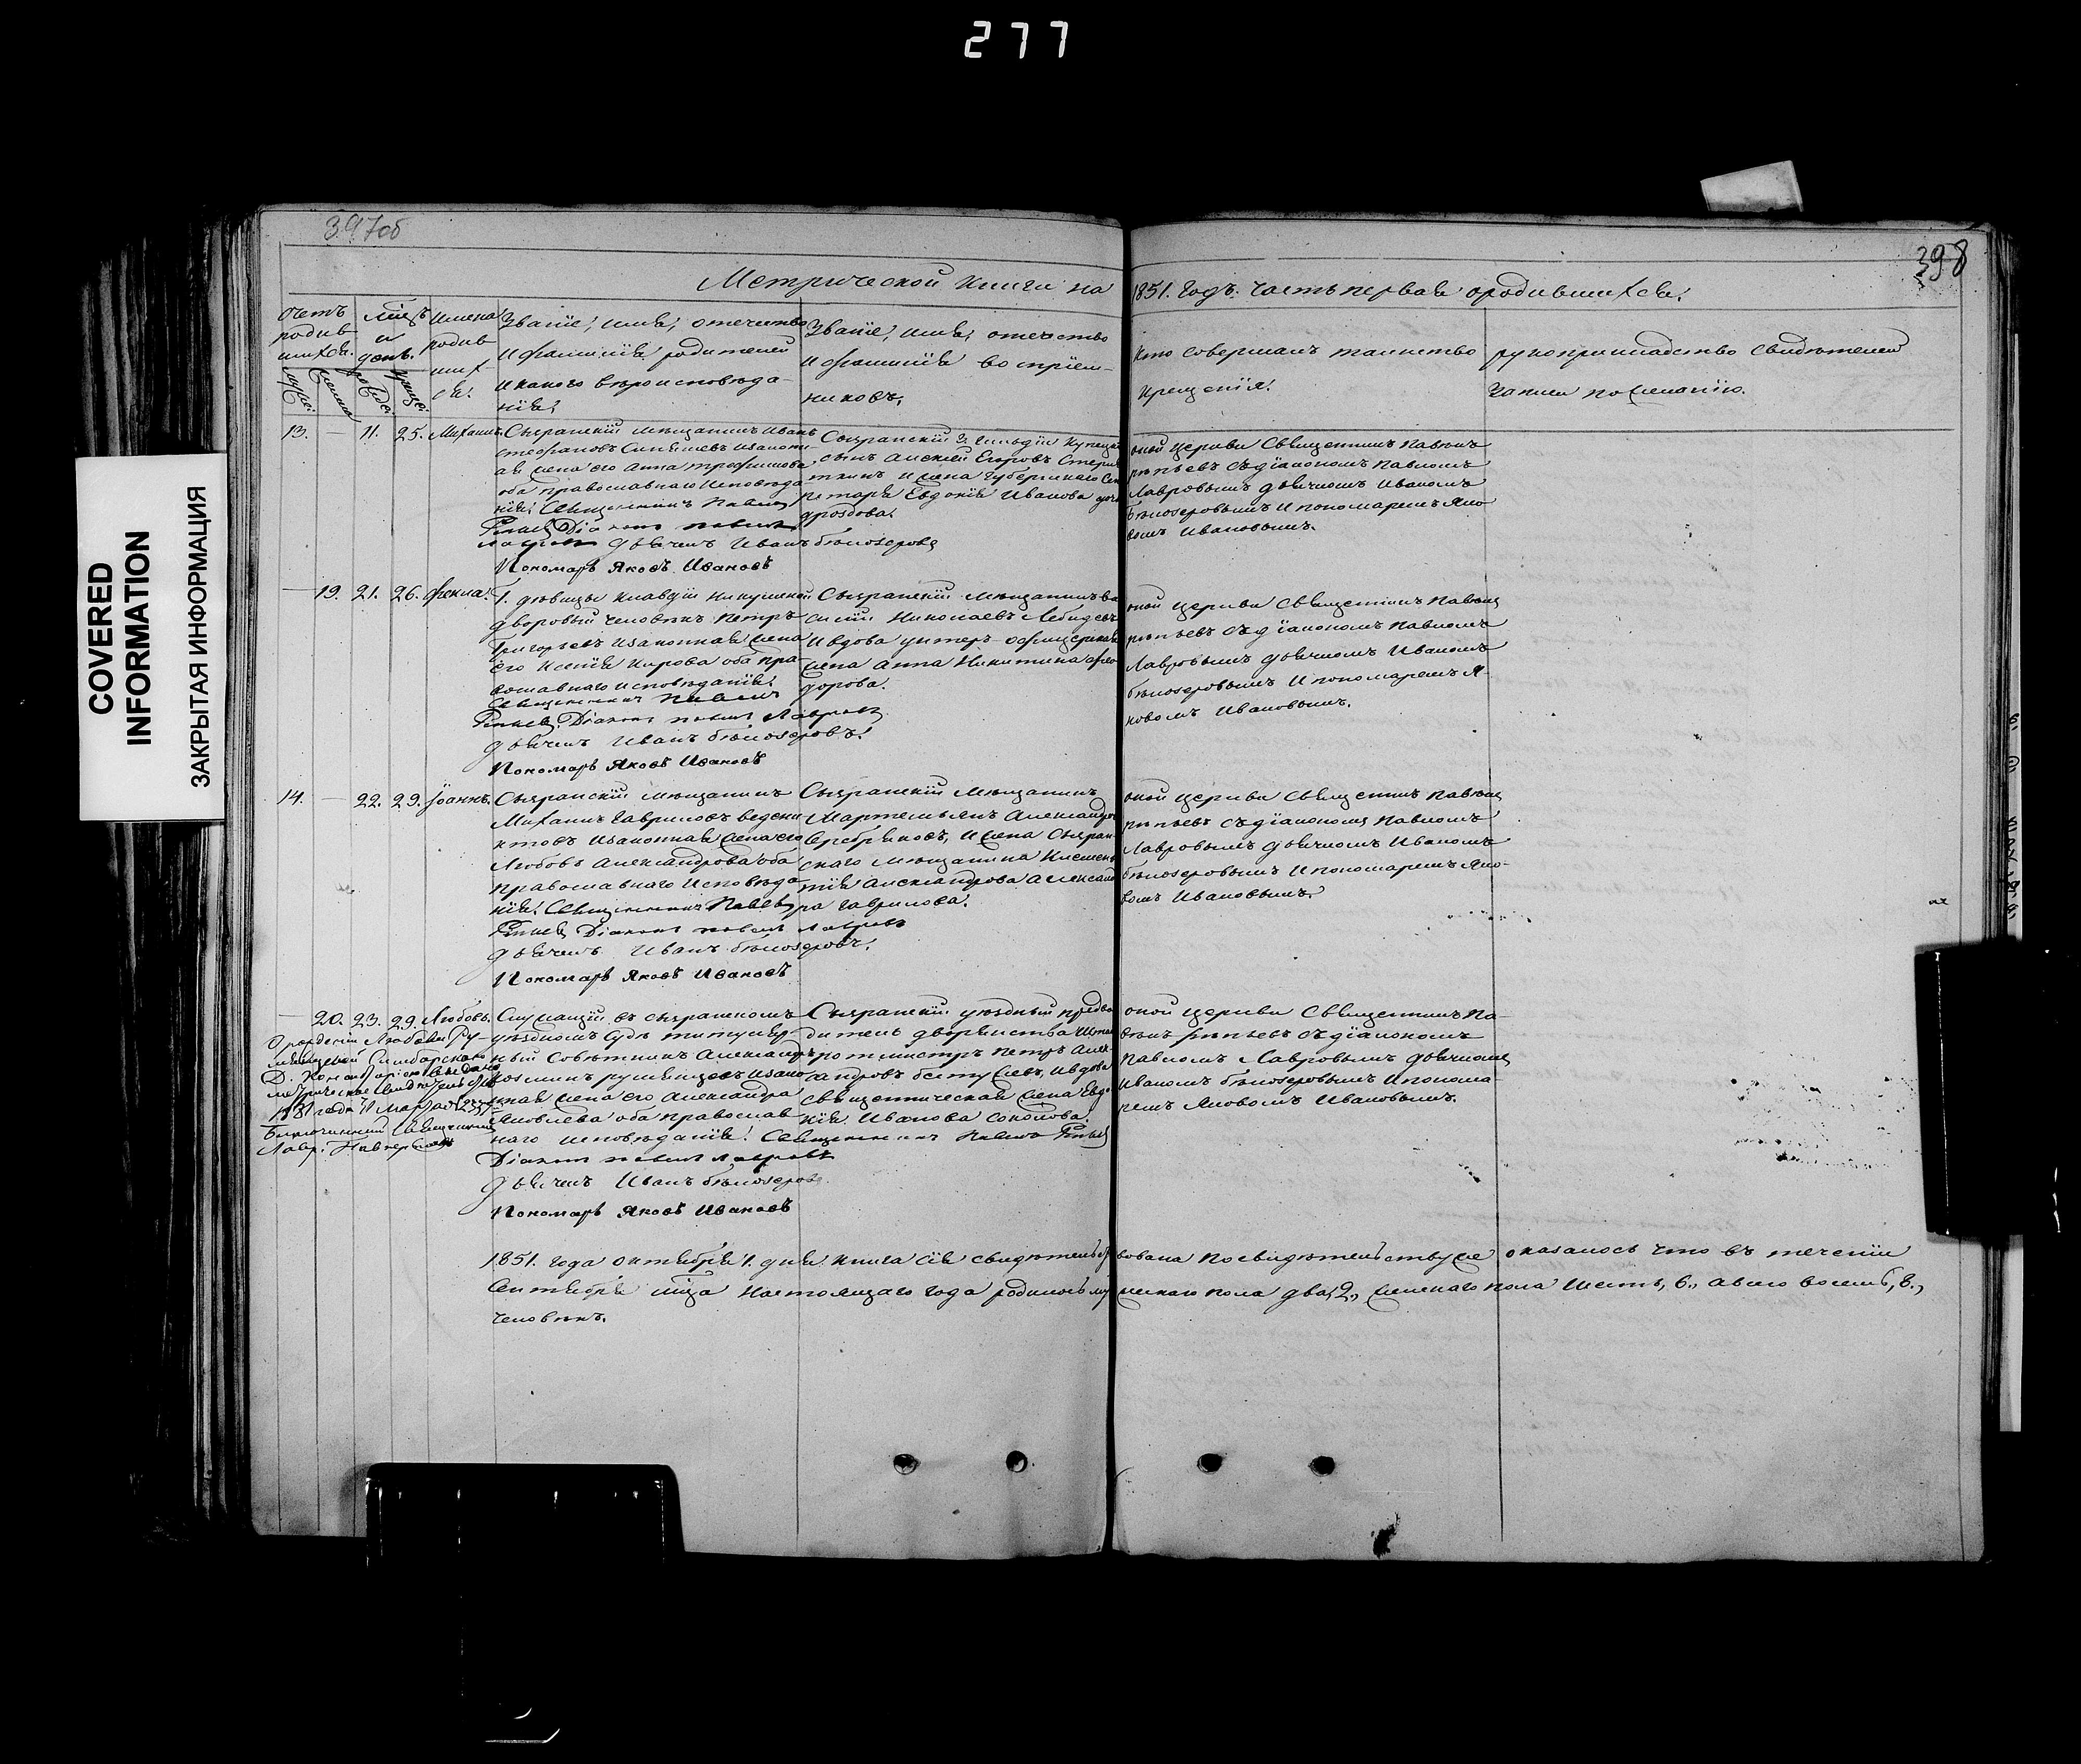 277
COVERED
INFORMATION
ЗАКРЫТАЯ ИНФОРМАЦИЯ
397об
398
Метрической книги на 1851. годъ. часть первая о родившихся.
Счетъ родившихся.
мужес: женска
Мѣцъ и день.
рожде: креще:
Имена родившихся.
Званіе, имя, отечество
и фамилія родителей
и какого вѣроисповѣда-
нія.
Званіе, имя, отечество
и фамилія воспріем-
никовъ.
Кто совершалъ таинство
крещенія.
рукоприкладство свидѣтелей
записи по желанію.
13. — 11. 25. Михаилъ.
Сызранскій мѣщанинъ Иванъ
Стефановъ и законн
ая жена его Анна Трофимова
оба православнаго исповѣда
нія. Священникъ Павелъ
Рѣпьевъ Діаконъ Павелъ
Лавровъ дьячекъ Иванъ Бѣлозеровъ
Пономарь Яковъ Ивановъ
Сызранскій 3й гильдіи купецкій
сынъ Алексей Егоровъ
и жена Губернскаго Сек
ретаря Евдокія Иванова
Дроздова.
оной церкви Священникъ Павелъ
Рѣпьевъ съ діакономъ Павломъ
Лавровымъ дьячкомъ Иваномъ
Бѣлозеровымъ и пономаремъ Яко
вомъ Ивановымъ.
— 19. 21. 26. Фекла.
Г. дѣвицы Клавдіи
дворовый человѣкъ Петръ
Григорьевъ и законная жена
его Ксенія Кирова оба пра
вославнаго исповѣданія.
Священникъ Павелъ
Рѣпьевъ Діаконъ Павелъ Лавровъ
дьячекъ Иванъ Бѣлозеровъ.
Пономарь Яковъ Ивановъ
Сызранскій мѣщанинъ Ва
силій Николаевъ Лебедевъ
и вдова унтеръ-офицерская
жена Анна Никитина Фео
дорова.
оной церкви Священникъ Павелъ
Рѣпьевъ съ діакономъ Павломъ
Лавровымъ дьячкомъ Иваномъ
Бѣлозеровымъ и пономаремъ Я-
ковомъ Ивановымъ.
14. — 22. 29. Іоаннъ.
Сызранскій мѣщанинъ
Михаилъ Гавриловъ Ведени
ктовъ и законная жена его
Любовь Александрова оба
православнаго исповѣда
нія. Священникъ Павелъ
Рѣпьевъ Діаконъ Павелъ Лавровъ
дьячекъ Иванъ Бѣлозеровъ.
Пономарь Яковъ Ивановъ
Сызранскій мѣщанинъ
Мартемьянъ Александровъ
Серебряковъ, и жена Сызран-
скаго мѣщанина Клемен
тія Александрова Александ
ра Гаврилова.
оной церкви Священникъ Павелъ
Рѣпьевъ съ діакономъ Павломъ
Лавровымъ дьячкомъ Иваномъ
Бѣлозеровымъ и пономаремъ Яко-
вомъ Ивановымъ.
— 20. 23. 29. Любовь.
О рожденіи Любови Ру-
мянцевой Симбирскою
Д. Консисторіею выдано
метрическое свидѣтельство
1881 года 11 Марта
Благочинный Священникъ
Лавр.
Служащій въ Сызранскомъ
уѣздномъ судѣ титуляр-
ный Совѣтникъ Александръ
Козминъ Румянцевъ и закон
ная жена его Александра
Яковлева оба православ
наго исповѣданія. Священникъ Павелъ Рѣпьевъ
Діаконъ Павелъ Лавровъ
дьячекъ Иванъ Бѣлозеровъ
Пономарь Яковъ Ивановъ
Сызранскій уѣздный предво
дитель дворянства Штабъ-
ротмистръ Петръ Алек-
сандровъ Бестужевъ, и вдова
священническая жена Евдо
кія Иванова Соколова.
оной церкви Священникъ Па-
велъ Рѣпьевъ съ діакономъ
Павломъ Лавровымъ дьячкомъ
Иваномъ Бѣлозеровымъ и понома-
ремъ Яковомъ Ивановымъ.
1851. года октября 1. дня книга сія свидѣтельствована по свидѣтельству же оказалось что въ теченіи
Сентября мѣца настоящаго года родилось мужескаго пола два, 2., женскаго пола шесть, 6., а всего восемь, 8.,
человѣкъ.